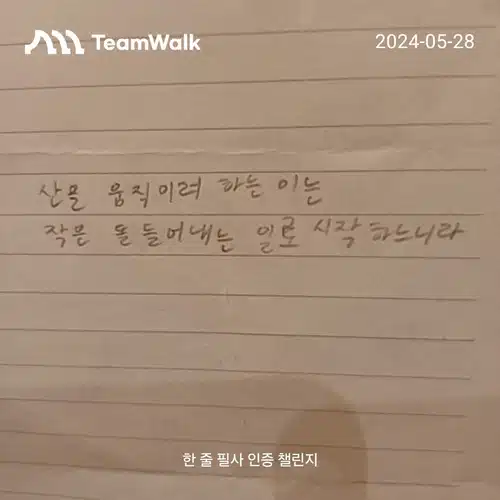 TeamWalk
2024-05-28
산을 움직이려 하는 이는
작은 돌 들어내는 일로 시작 하느니라
한 줄 필사 인증 챌린지